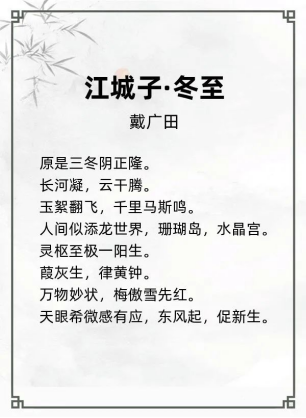 江城子·冬至
戴广田
原是三冬阴正隆。
长河凝，云干腾。
玉絮翻飞，千里马斯鸣。
人间似添龙世界，珊瑚岛，水晶宫。
灵枢至极一阳生。
葭灰生，律黄钟。
万物妙状，梅傲雪先红。
天眼希微感有应，东风起，促新生。